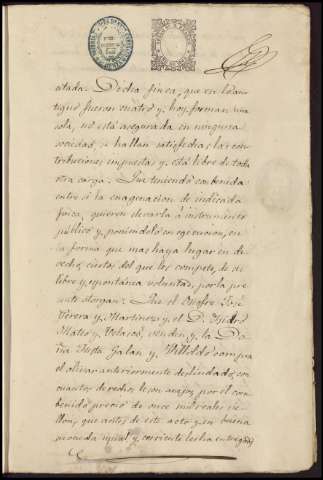 citada: Dicha finca, que en lo an-
tiguo fueron cuatro y, hoy, forman una
sola, no está asegurada en ninguna
sociedad, se hallan satisfechas las con-
tribuciones impuestas y está libre de toda
otra carga. Que teniendo convenida
entre sí la enagenacion de indicada
finca, quieren elevarla á instrumento
público y, poniendolo en egecucion, en
la forma que mas haya lugar en de-
recho, ciertos del que les compete, de su
libre y espontánea voluntad, por la pre-
sente otorgan: Que el José
Perera y Martinez y el D. Isidro
Mateo y Velasco, venden y la Do-
ña Justa Galan y compra
el olivar anteriormente deslindado, con
cuantos derechos le son anejos, por el con-
benido precio de once mil reales ve-
llon, que antes de este acto y en buena
moneda usual y corriente les ha entregado